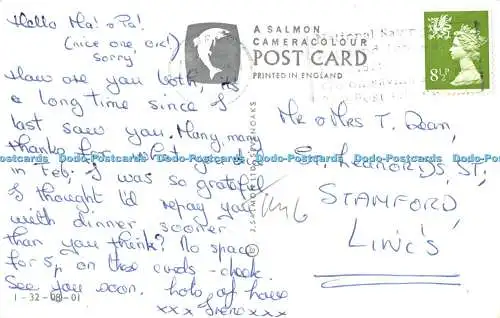 Hello Ma! & Pa!
(nice one, eh!)
sorry
How are you both, its
a long time since I
last saw you. Many, many
thanks for
in Feb; I was so grateful
I thought I'd repay you
with dinner sooner
than you think? No space
for 5p on these cards - cheek.
See you soon. lots of love
xxx xxx
1-32-08-01
A SALMON
CAMERACOLOUR
POST CARD
PRINTED IN ENGLAND
8½P
Mr & Mrs T. Dean,
St,
STAMFORD
LINC'S
Dodo-Postcards Dodo-Postcards Dodo-Postcards Dodo-Postcards Dodo-Postcards Dodo-Postcards